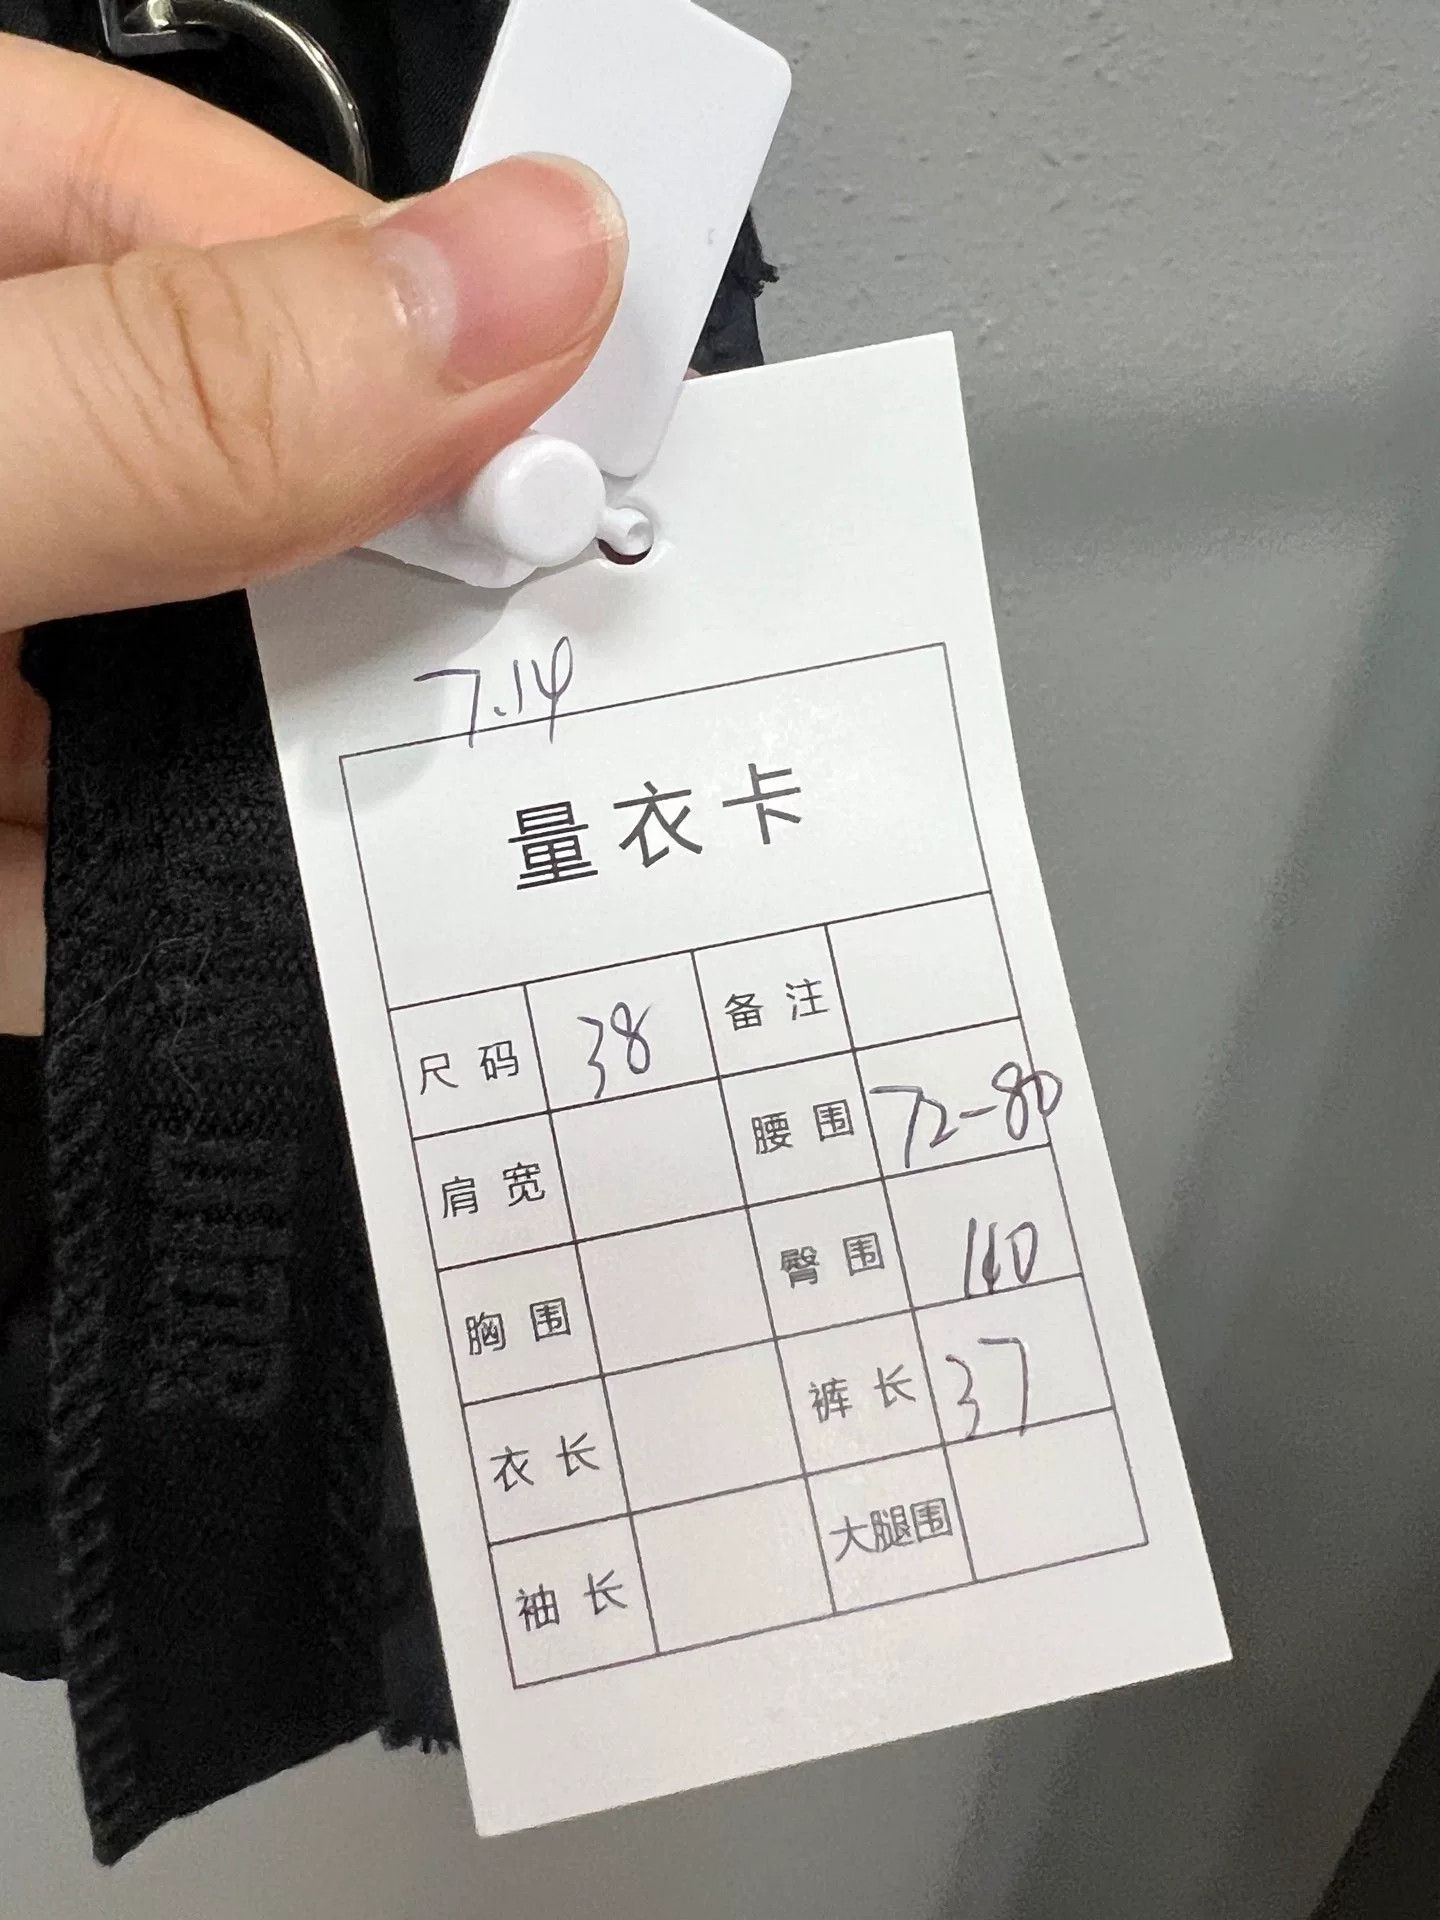 7.14
量衣卡
尺码 38 备注
肩宽 腰围 72-80
胸围 臀围 110
衣长 裤长 37
袖长 大腿围